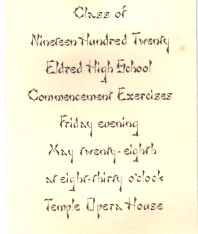 Class of
Nineteen Hundred Twenty
Eldred High School
Commencement Exercises
Friday evening
May twenty-eighth
at eight-thirty o'clock
Temple Opera House